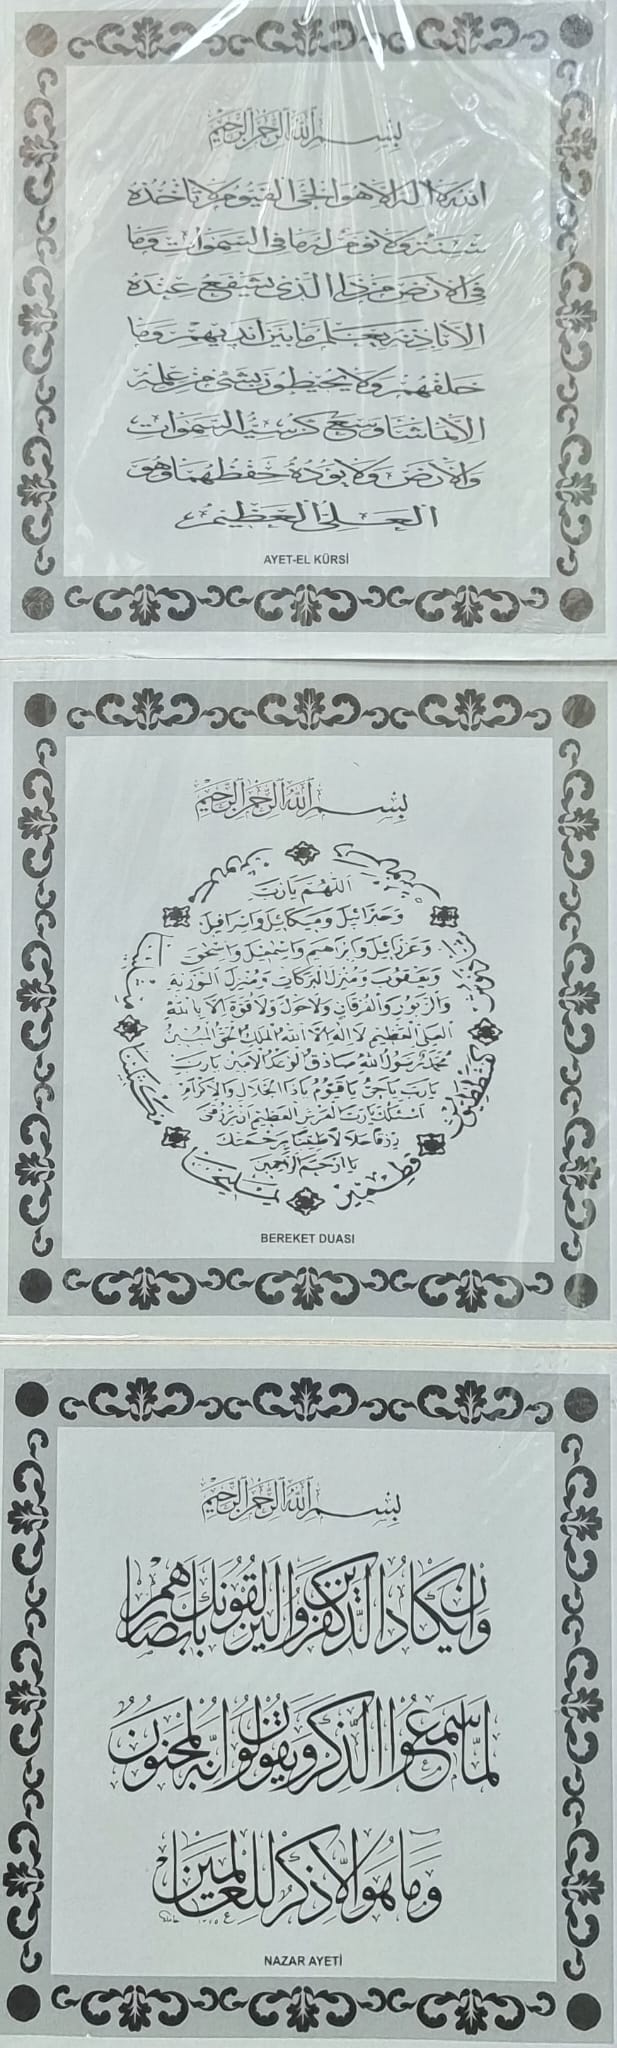 بسم الله الرحمن الرحيم
الله لا اله الا هو الحى القيوم لا تأخذه
سنة ولا نوم له ما فى السموات وما
فى الارض من ذا الذى يشفع عنده
الا باذنه يعلم ما بين ايديهم وما
خلفهم ولا يحيطون بشئ من علمه
الا بما شاء وسع كرسيه السموات
والارض ولا يؤده حفظهما وهو
العلى العظيم
AYET-EL KÜRSİ
بسم الله الرحمن الرحيم
اللهم يا رب
وجبرائيل وميكائيل واسرافيل
وعزرائيل وابراهيم واسمعيل واسحق
ويعقوب ومنزل البركات ومنزل التورية
والزبور والفرقان ولا حول ولا قوة الا بالله
العلى العظيم لا اله الا الله الملك الحق المبين
محمد رسول الله صادق الوعد الامين يا رب
يا رب يا حى يا قيوم يا ذا الجلال والاكرام
اسئلك يا رب العرش العظيم ان ترزقنى
رزقا حلالا طيبا برحمتك
يا ارحم الراحمين
كفشططيوش
قطمير
يمليخا
مكثلينا
BEREKET DUASI
بسم الله الرحمن الرحيم
وان يكاد الذين كفروا ليزلقونك بابصارهم
لما سمعوا الذكر ويقولون انه لمجنون
وما هو الا ذكر للعالمين
NAZAR AYETİ